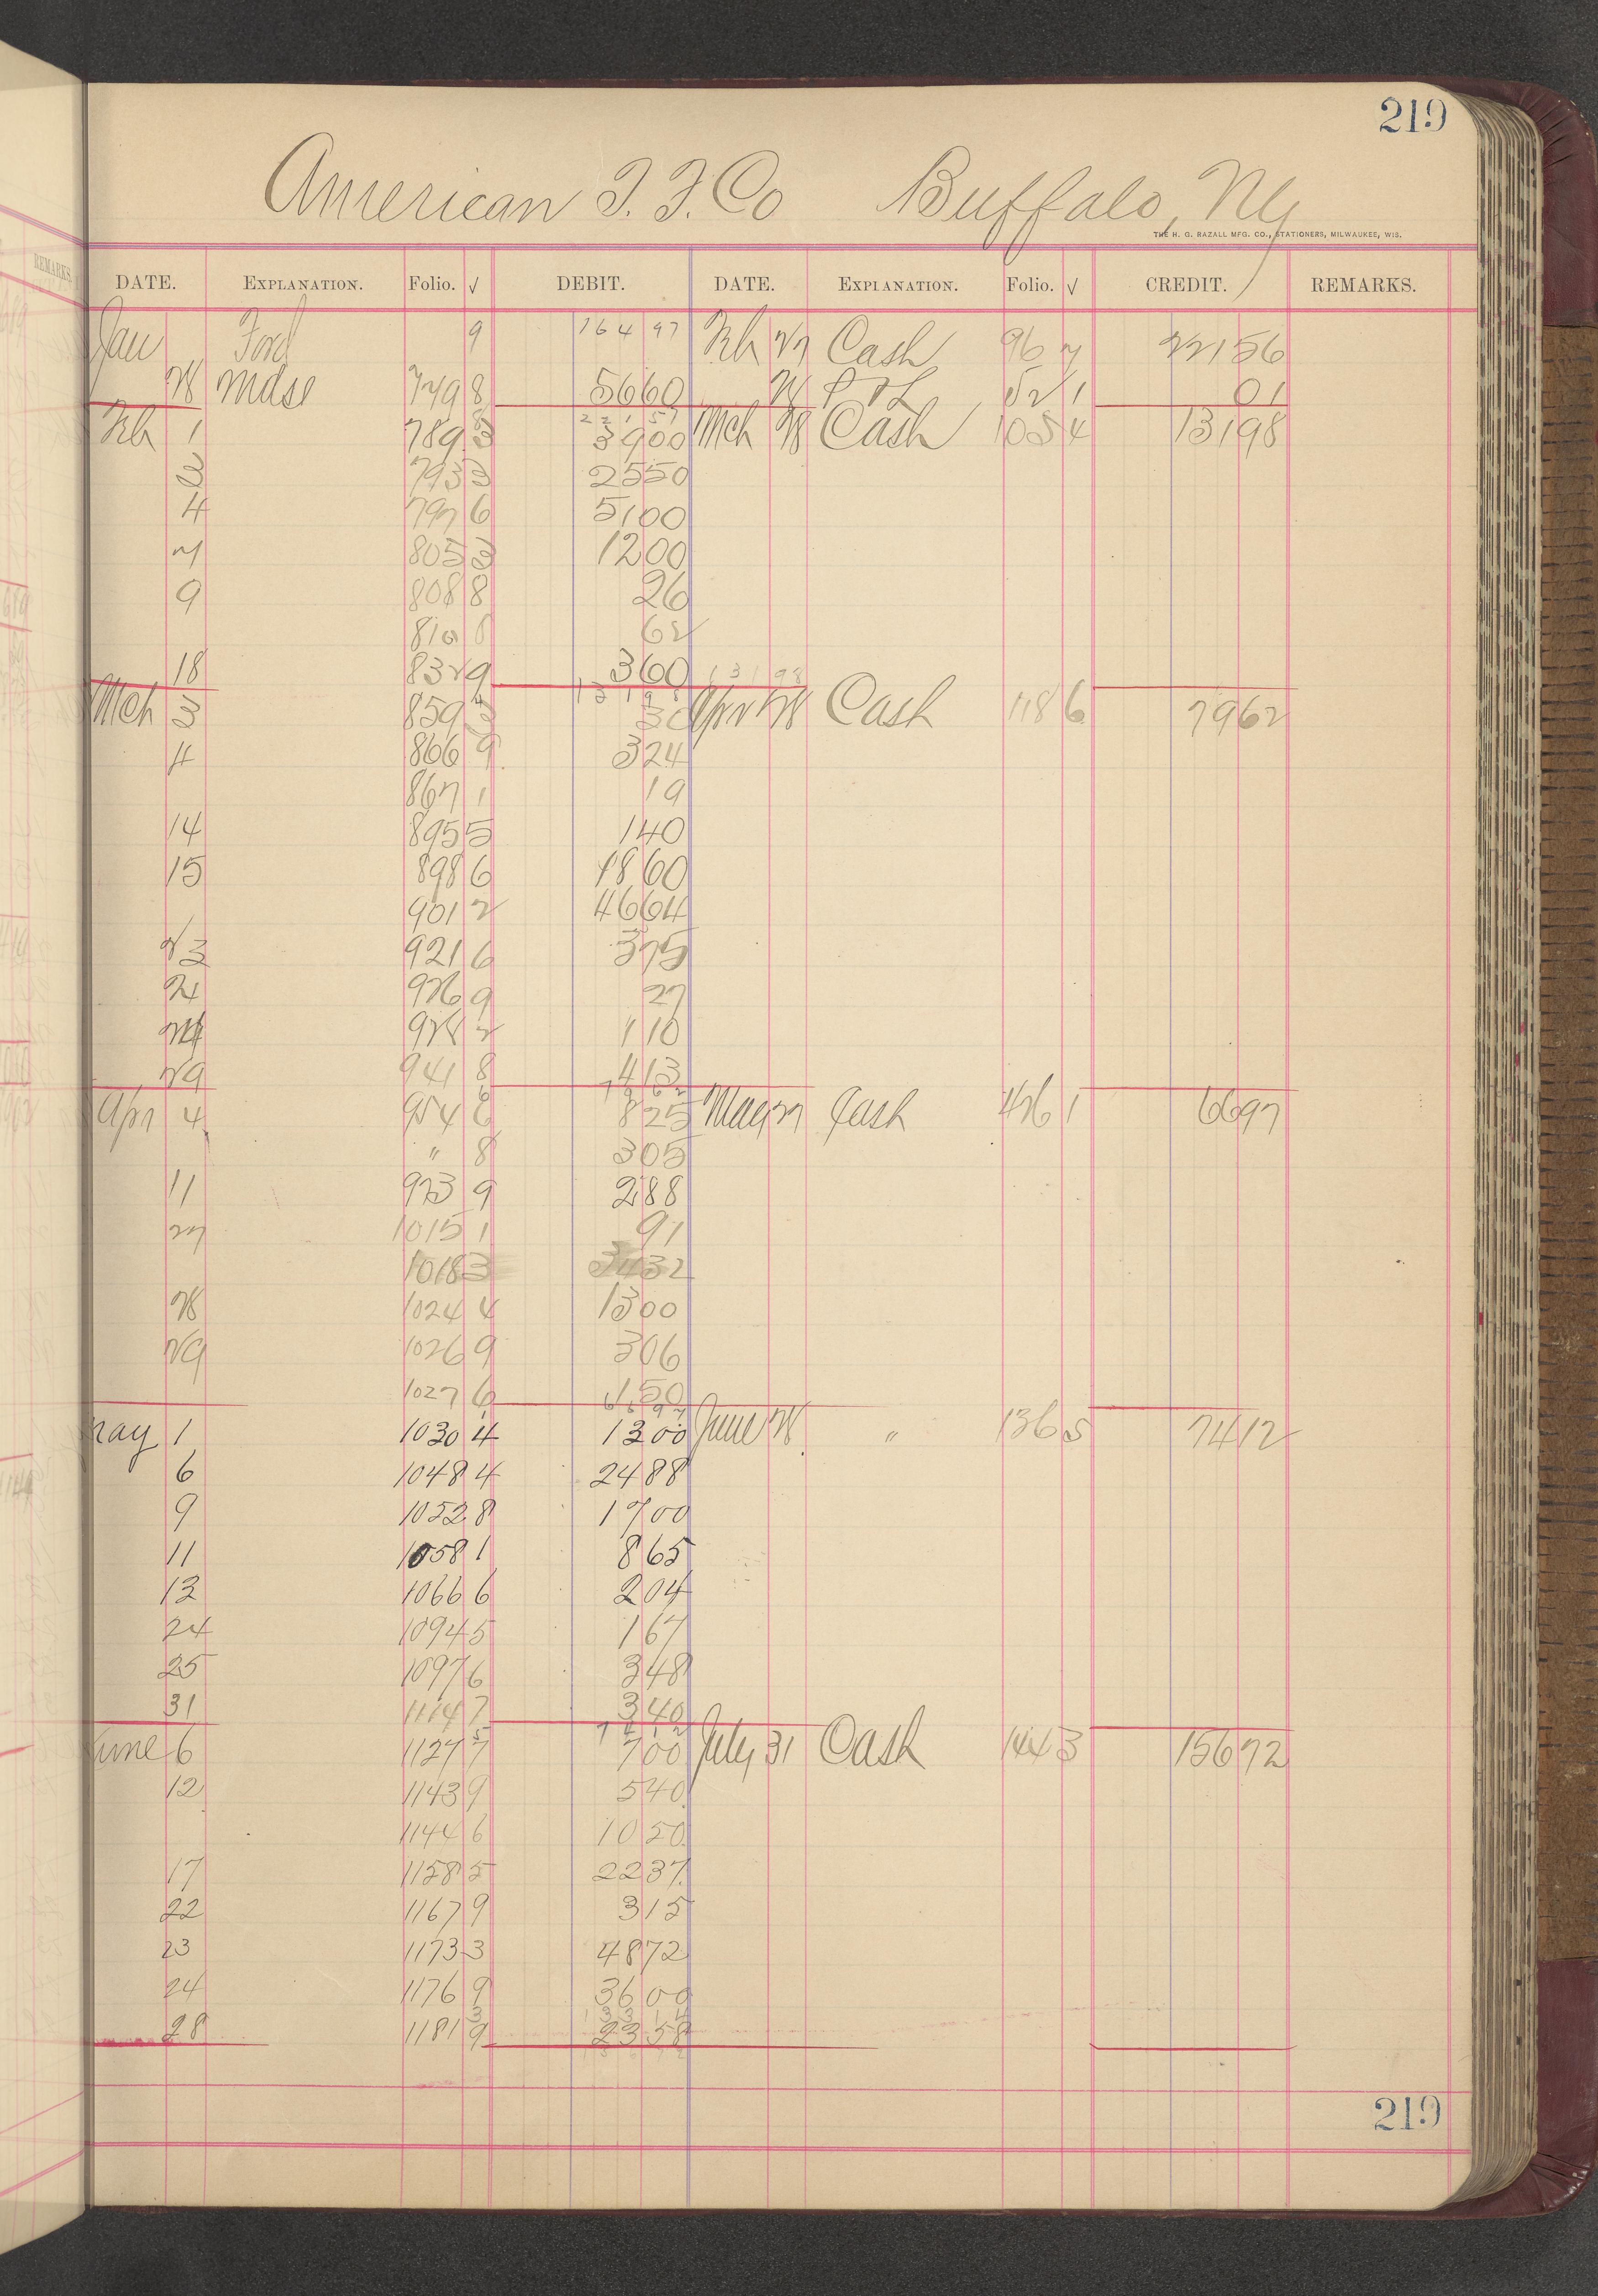 219
American T. F. Co Buffalo, Ny
THE H. G. RAZALL MFG. CO., STATIONERS, MILWAUKEE, WIS.
REMARKS.
DATE. EXPLANATION. Folio. √ DEBIT. DATE. EXPLANATION. Folio. √ CREDIT. REMARKS.
Jan Ford 9 164 97 Feb 27 Cash 96 7 221 56
28 Mdse 749 8 56 60 28 P & L 52 1 01
221 57
Feb 1 789 3 39 00 Mch 28 Cash 105 4 131 98
3 793 3 25 50
4 797 6 51 00
7 805 3 12 00
9 808 8 26
810 8 62
18 832 9 3 60 131 98
131 98
Mch 3 859 3 30 Apr 28 Cash 118 6 79 62
4 866 9 3 24
867 1 19
14 895 5 1 40
15 898 6 18 60
901 2 46 64
23 921 6 3 75
24 926 9 27
928 2 1 10
29 941 8 4 13
79 62
Apr 4 954 6 8 25 May 27 Cash 126 1 66 97
" 8 3 05
11 973 9 2 88
27 1015 1 91
1018 3 34 32
28 1024 4 13 00
29 1026 9 3 06
1027 6 1 50
66 97
may 1 1030 4 13 00 June 28 " 136 5 74 12
6 1048 4 24 88
9 1052 8 17 00
11 1058 1 8 65
13 1066 6 2 04
24 1094 5 1 67
25 1097 6 3 48
31 1114 7 3 40
74 12
June 6 1127 7 7 00 July 31 Cash 144 3 156 72
12 1143 9 5 40
1144 6 10 50
17 1158 5 22 37
22 1167 9 3 15
23 1173 3 48 72
24 1176 9 36 00
133 14
28 1181 9 23 58
219